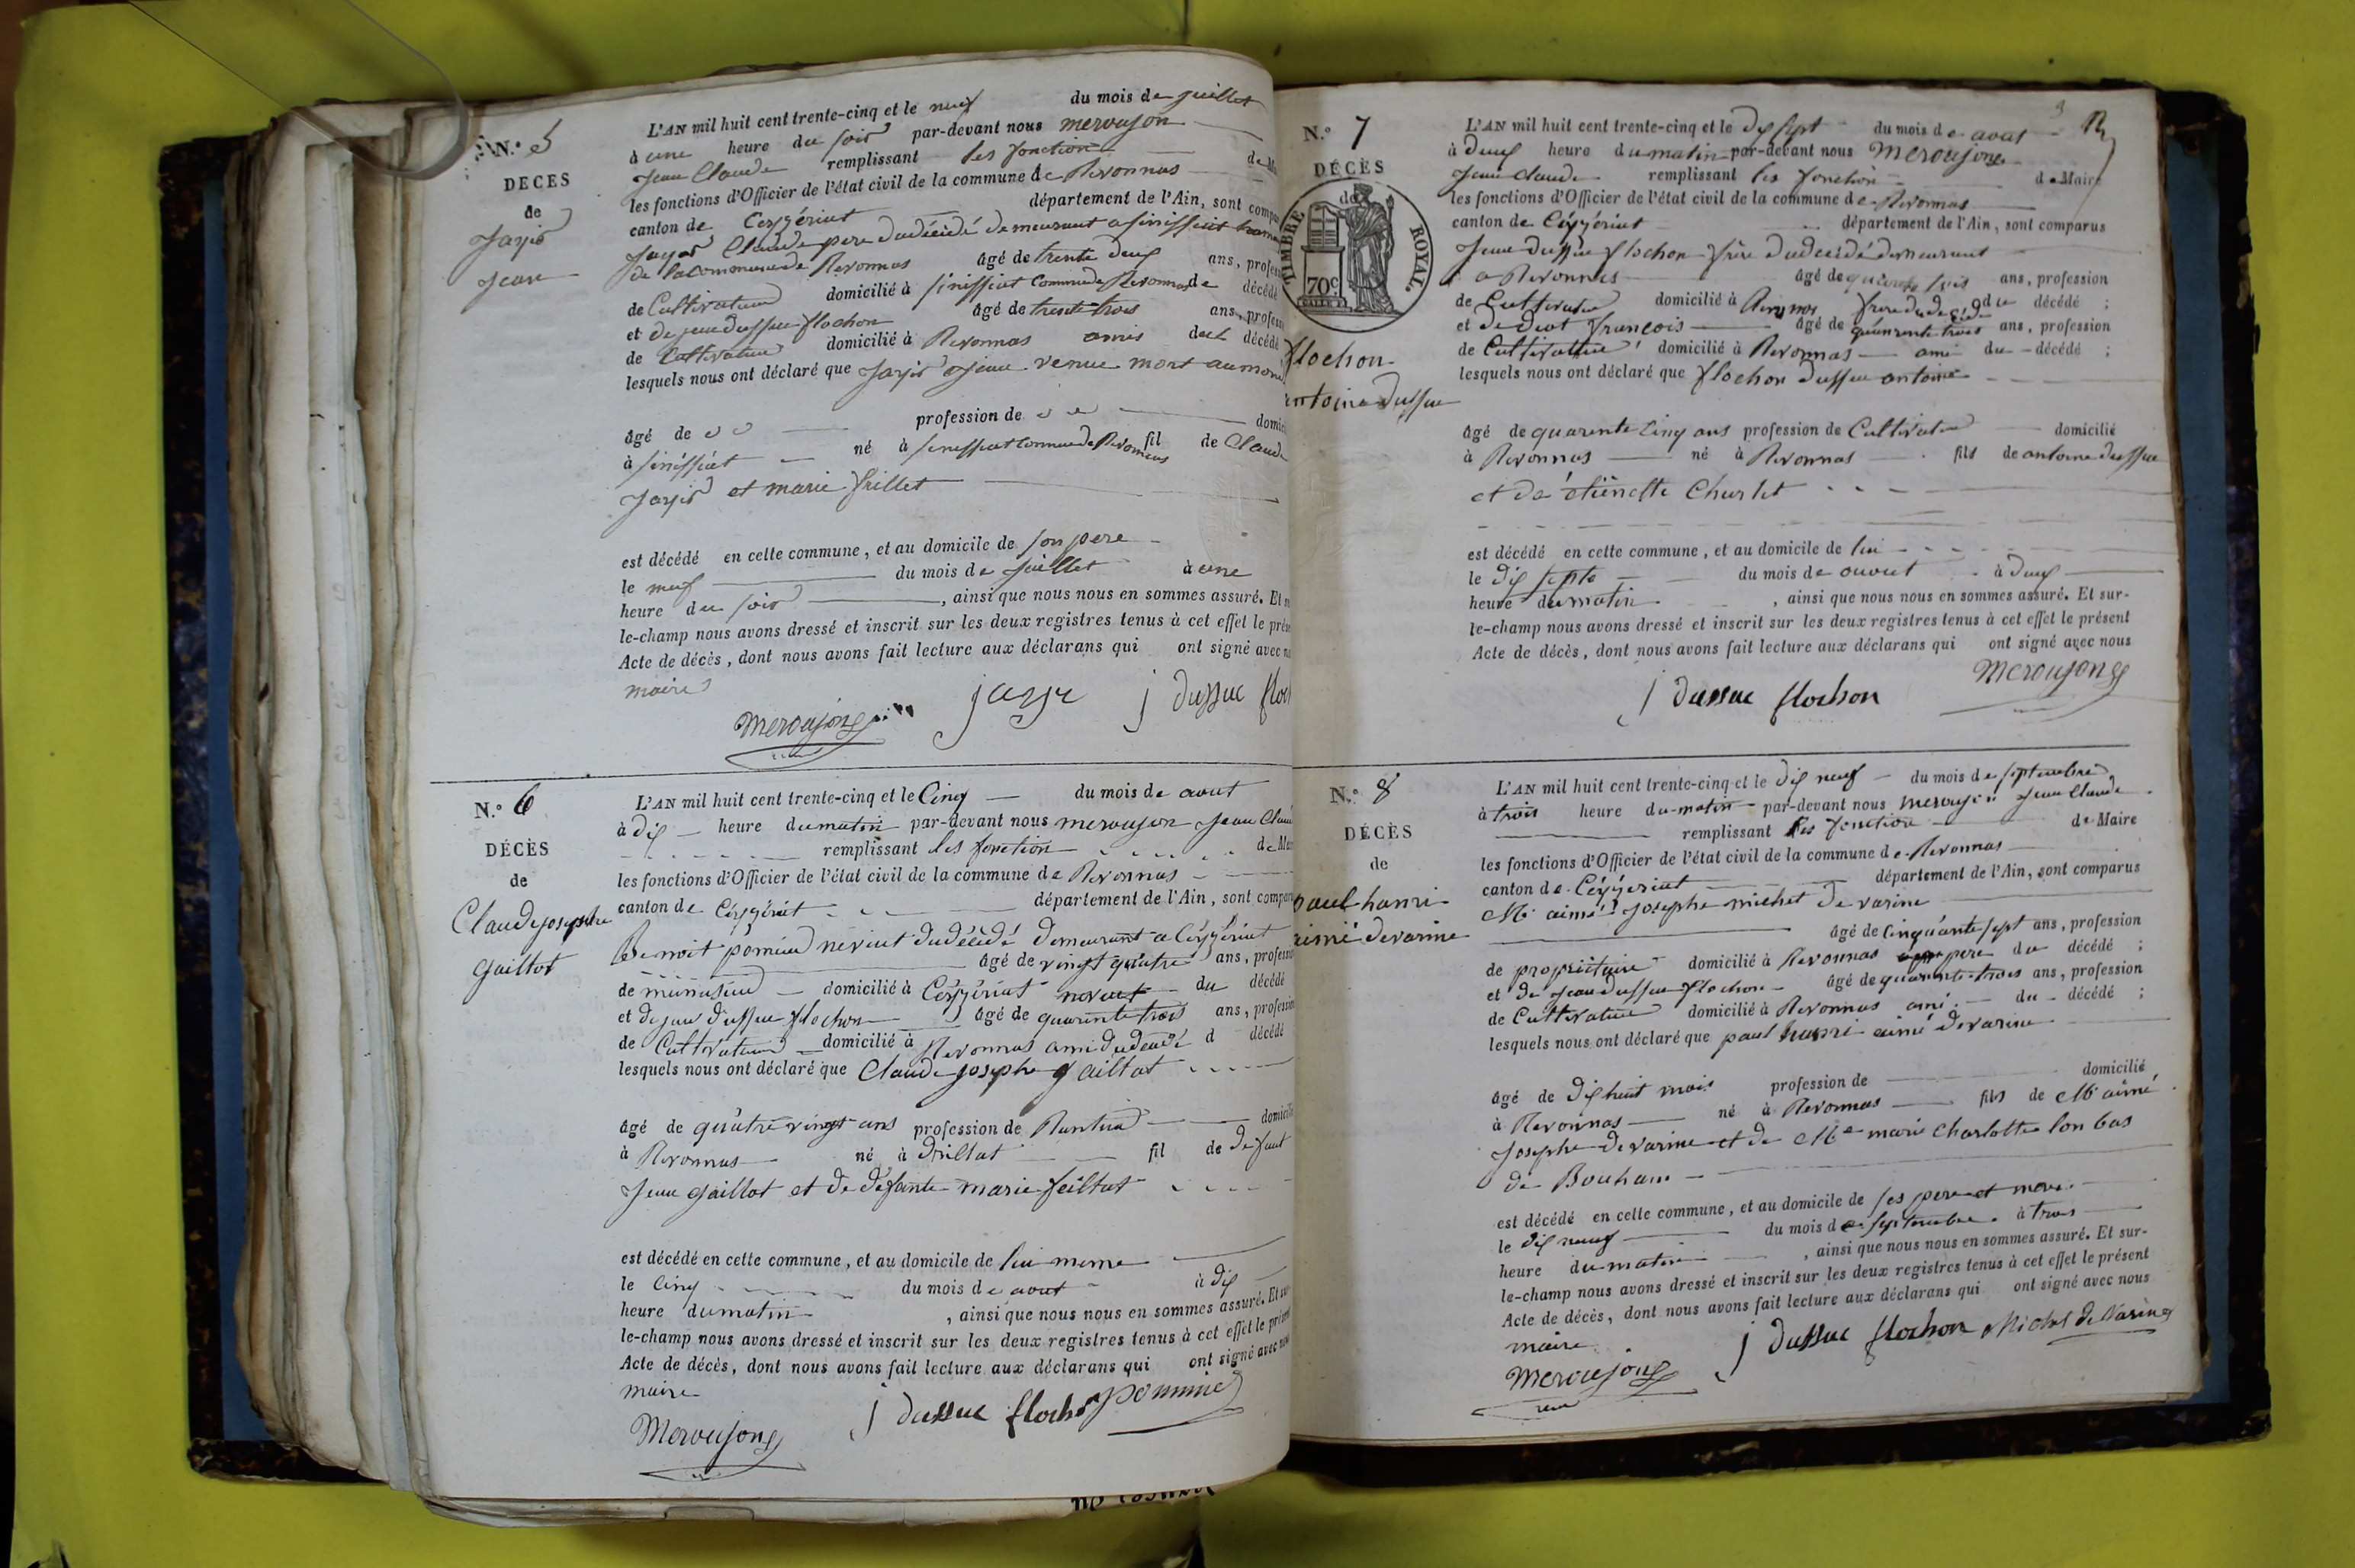 N.° 5
DECES
de
Jayr
Jean
L'AN mil huit cent trente-cinq et le neuf du mois de juillet
à une heure du soir par-devant nous meroujon
Jean Claude remplissant les fonction de
les fonctions d'Officier de l'état civil de la commune de Revonnas
canton de Ceyzériat département de l'Ain, sont
Jayr Claude pere du décédé demeurant a sénissiat
de la commune de Revonnas âgé de trente deux ans,
de Cultivateur domicilié à sénissiat Commune de Revonnas de décédé
et de jean dussuc flochon âgé de trente trois ans,
de Cultivateur domicilié à Revonnas amis du décédé
lesquels nous ont déclaré que Jayr Jean venue mort au
âgé de profession de
à sénissiat né à senissiat Commune de Revonnas fil de Claude
Jayr et marie frillet
est décédé en cette commune, et au domicile de son pere
le neuf du mois de Juillet à une
heure du soir, ainsi que nous nous en sommes assuré. Et
le-champ nous avons dressé et inscrit sur les deux registres tenus à cet effet le
Acte de décès, dont nous avons fait lecture aux déclarans qui ont signé avec
maire
meroujon jayr j dussuc
N.° 6
DÉCÈS
de
Claude josephe
gaillot
L'AN mil huit cent trente-cinq et le Cinq du mois de aout
à dix heure du matin par-devant nous meroujon Jean
remplissant les fonction de
les fonctions d'Officier de l'état civil de la commune de Revonnas
canton de Céyzériat département de l'Ain, sont
Benoit neveut du décédé demeurant a Céyzériat
âgé de vingt quatre ans,
de domicilié à Céyzériat neveut du décédé
et de jean dussuc flochon âgé de quarente trois ans,
de Cultivateur domicilié à Revonnas ami du décédé d décédé
lesquels nous ont déclaré que Claude Josephe gaillot
âgé de quatre vingt ans profession de Rentier
à Revonnas né à Druillat fil de defunt
Jean gaillot et de defunte marie
est décédé en cette commune, et au domicile de lui meme
le Cinq du mois de aout à dix
heure du matin, ainsi que nous nous en sommes assuré. Et
le-champ nous avons dressé et inscrit sur les deux registres tenus à cet effet le
Acte de décès, dont nous avons fait lecture aux déclarans qui ont signé avec
maire
Meroujon j dussuc flochon
N.° 7
DÉCÈS
de
TIMBRE ROYAL
70c
flochon
antoine dussuc
L'AN mil huit cent trente-cinq et le dix sept du mois de aout
à deux heure du matin par-devant nous Meroujon
Jean Claude remplissant les fonction de Maire
les fonctions d'Officier de l'état civil de la commune de Revonnas
canton de Céyzériat département de l'Ain, sont comparus
Jean dussuc flochon frère du decédé demeurant
a Revonnas âgé de quarente trois ans, profession
de Cultivateur domicilié à Revonnas frere du decédé du décédé ;
et de François âgé de quarente trois ans, profession
de Cultivateur domicilié à Revonnas ami du décédé ;
lesquels nous ont déclaré que flochon dussuc antoine
âgé de quarente Cinq ans profession de Cultivateur domicilié
à Revonnas né à Revonnas fils de antoine dussuc
et de étiénette Charlet
est décédé en cette commune, et au domicile de lui
le dix septe du mois de aout à deux
heure du matin, ainsi que nous nous en sommes assuré. Et sur-
le-champ nous avons dressé et inscrit sur les deux registres tenus à cet effet le présent
Acte de décès, dont nous avons fait lecture aux déclarans qui ont signé avec nous
j dussuc flochon Meroujon
N.° 8
DÉCÈS
de
paul hanri
aimé devarine
L'AN mil huit cent trente-cinq et le dix neuf du mois de septembre
à trois heure du matin par-devant nous meroujon Jean Claude
remplissant les fonction de Maire
les fonctions d'Officier de l'état civil de la commune de Revonnas
canton de Céyzeriat département de l'Ain, sont comparus
Mr aimé Josephe michel de varine
âgé de Cinquante sept ans, profession
de propriétaire domicilié à Revonnas pere du décédé ;
et de Jean dussuc flochon âgé de quarente trois ans, profession
de Cultivateur domicilié à Revonnas ami du décédé ;
lesquels nous ont déclaré que paul hanri aimé devarine
âgé de dix huit mois profession de domicilié
à Revonnas né à Revonnas fils de Mr aimé
Josephe de varine et de Me marie Charlotte
de
est décédé en cette commune, et au domicile de ses pere et mere
le dix neuf du mois de septembre à trois
heure du matin, ainsi que nous nous en sommes assuré. Et sur-
le-champ nous avons dressé et inscrit sur les deux registres tenus à cet effet le présent
Acte de décès, dont nous avons fait lecture aux déclarans qui ont signé avec nous
maire
Meroujon j dussuc flochon Michel de Varine